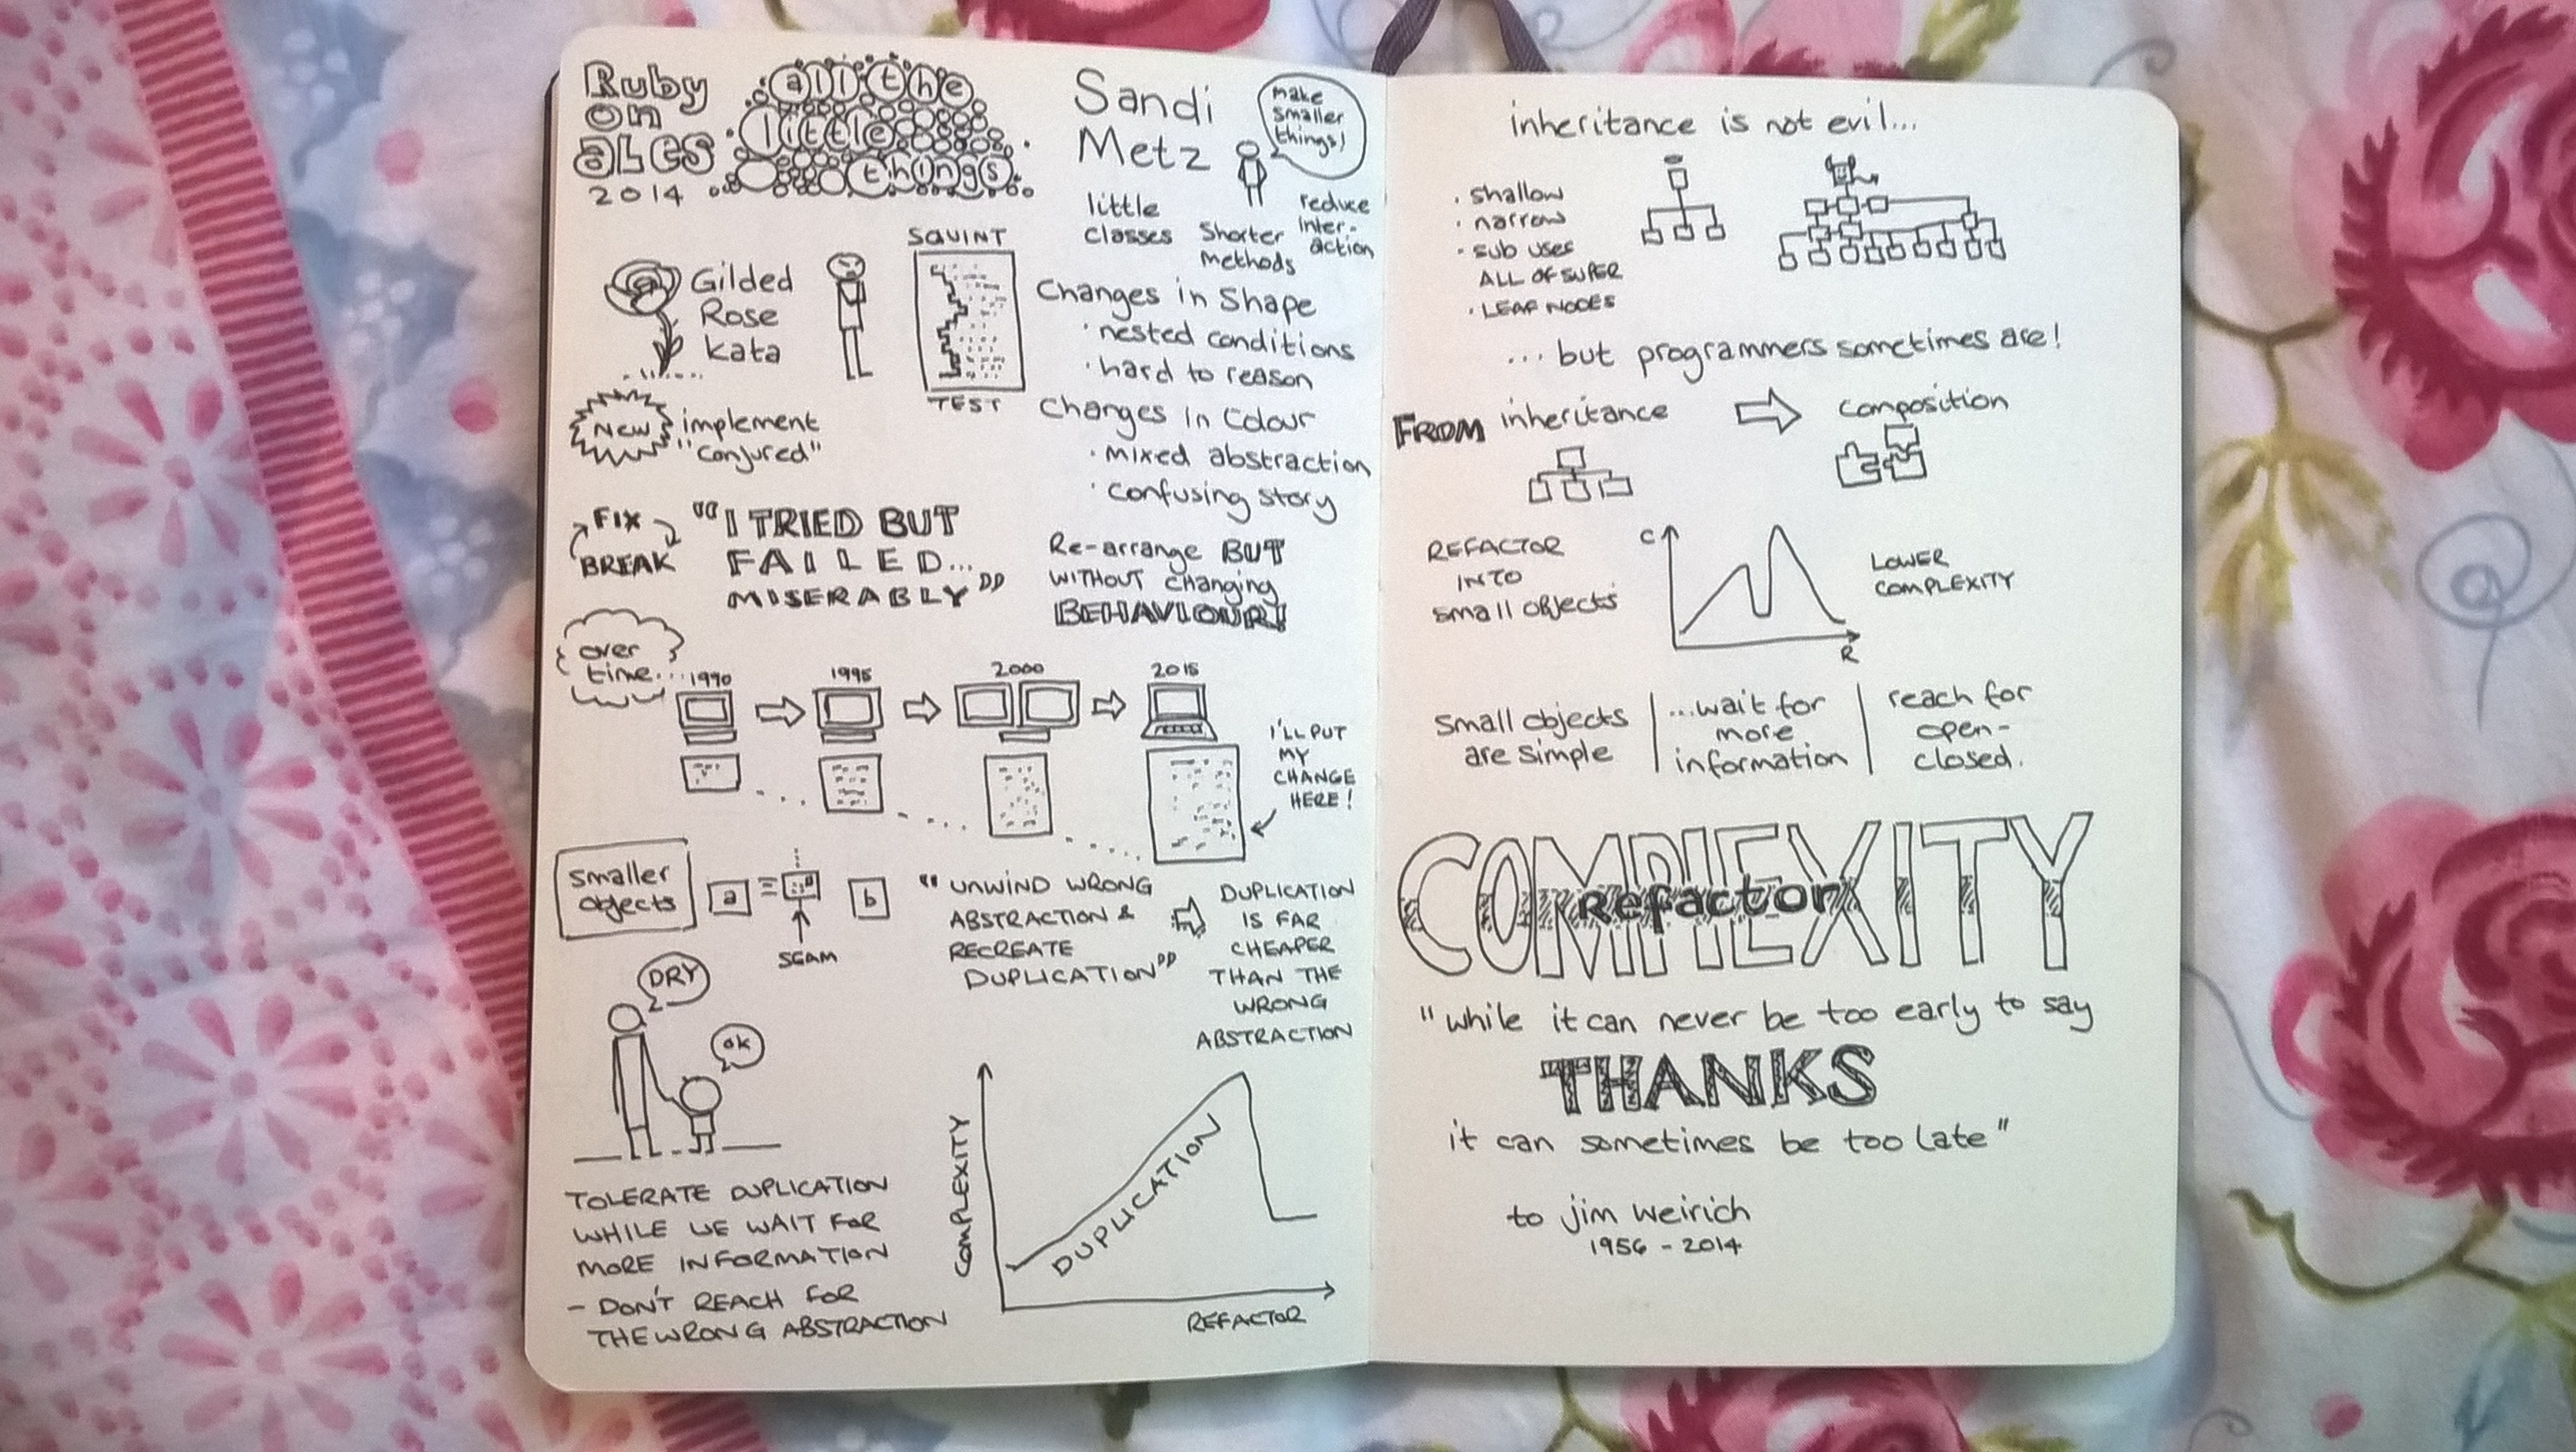 Ruby
on
ales
2014
all the
little
things
Sandi
Metz
make
smaller
things!
little
classes
shorter
methods
reduce
inter-
action
Gilded
Rose
Kata
SQUINT
TEST
Changes in Shape
· nested conditions
· hard to reason
Changes in Colour
· mixed abstraction
· confusing story
NEW
implement
"conjured"
FIX
BREAK
"I TRIED BUT
FAILED...
MISERABLY"
Re-arrange BUT
WITHOUT changing
BEHAVIOUR!
over
time...
1990
1995
2000
2015
I'LL PUT
MY
CHANGE
HERE!
smaller
objects
a
b
SEAM
"UNWIND WRONG
ABSTRACTION &
RECREATE
DUPLICATION"
DUPLICATION
IS FAR
CHEAPER
THAN THE
WRONG
ABSTRACTION
DRY
OK
TOLERATE DUPLICATION
WHILE WE WAIT FOR
MORE INFORMATION
- DON'T REACH FOR
THE WRONG ABSTRACTION
COMPLEXITY
DUPLICATION
REFACTOR
inheritance is not evil...
· shallow
· narrow
· sub uses
ALL OF SUPER
· LEAF NODES
... but programmers sometimes are!
FROM inheritance
composition
REFACTOR
INTO
small objects
C
R
LOWER
COMPLEXITY
small objects
are simple
...wait for
more
information
reach for
open-
closed.
COMPLEXITY
Refactor
"while it can never be too early to say
THANKS
it can sometimes be too late"
to jim weirich
1956 - 2014